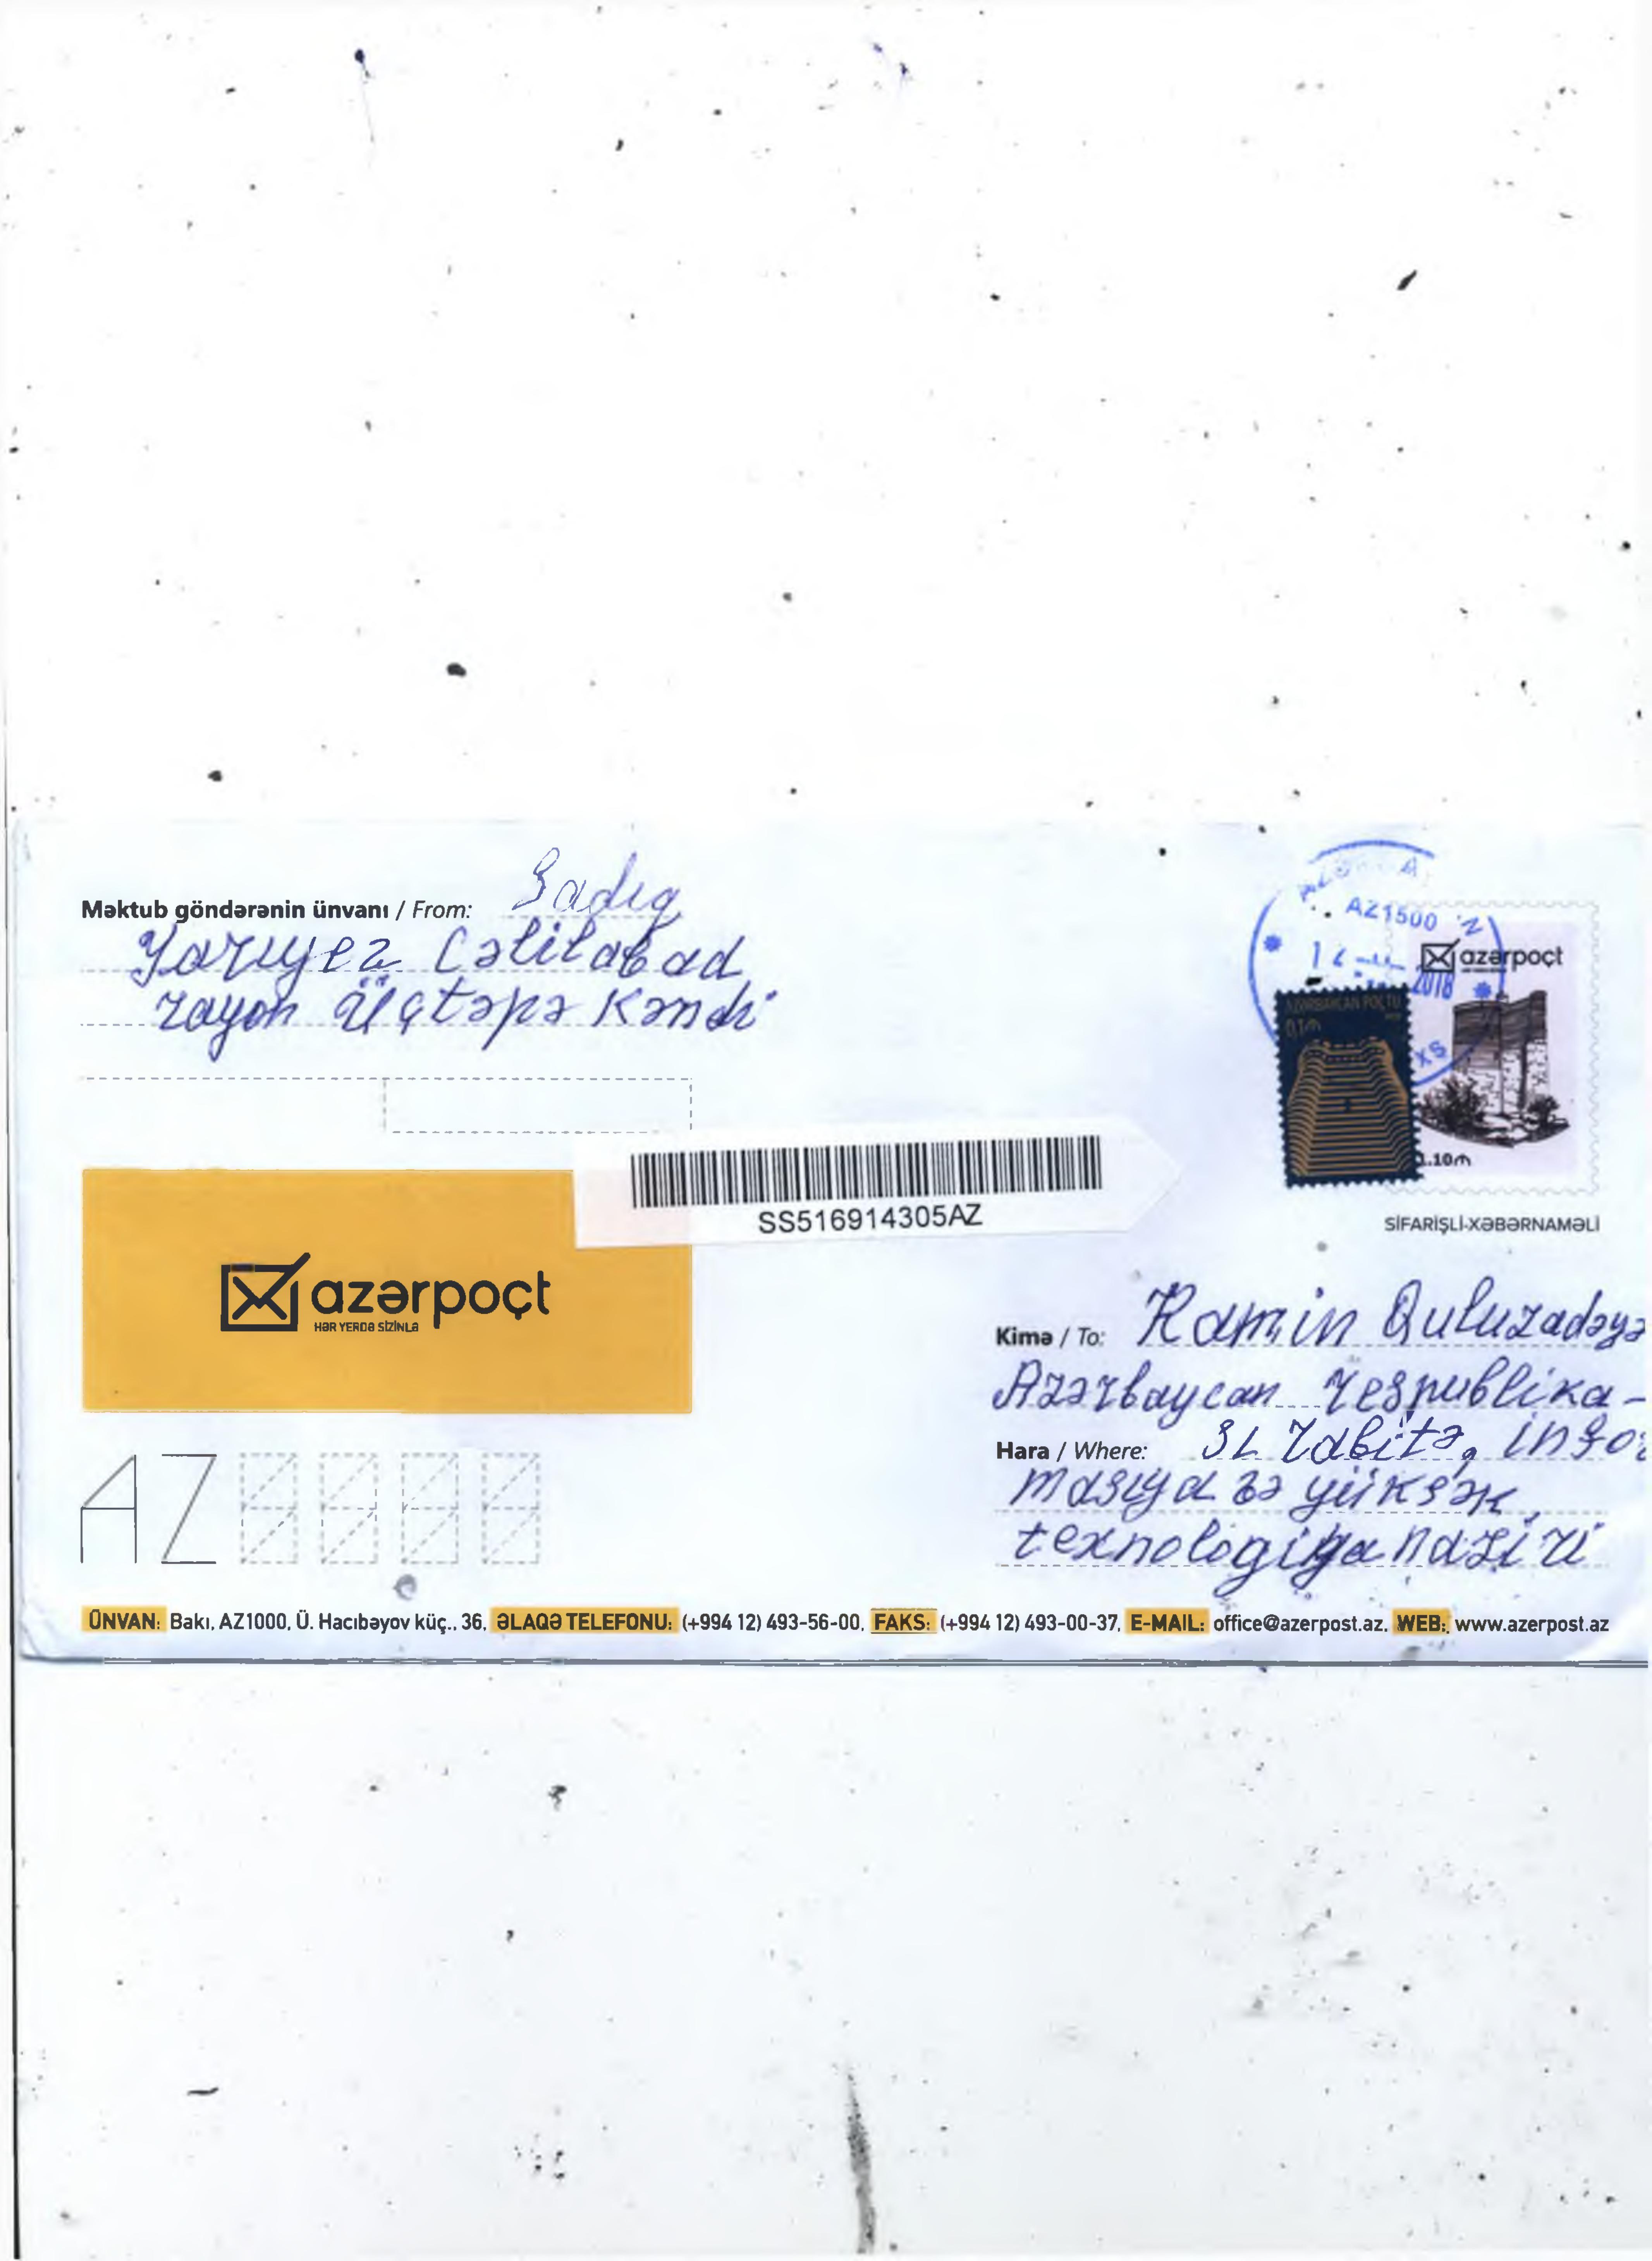 Məktub göndərənin ünvanı / From: Sadıq
Yarıyez Cəlilabad
rayon Üçtəpə Kəndi
AZ1500
2018
azərpoçt
AZƏRBAYCAN POÇTU
0,1₼
1.10₼
SS516914305AZ
SİFARİŞLİ-XƏBƏRNAMƏLİ
azərpoçt
HƏR YERDƏ SİZİNLƏ
Kimə / To: Ramin Quluzadəyə
Azərbaycan respublika-
Hara / Where: sı rabitə, infor
masıya və yüksək
texnologiya naziri
AZ
ÜNVAN: Bakı, AZ1000, Ü. Hacıbəyov küç., 36, ƏLAQƏ TELEFONU: (+994 12) 493-56-00, FAKS: (+994 12) 493-00-37, E-MAIL: office@azerpost.az, WEB: www.azerpost.az